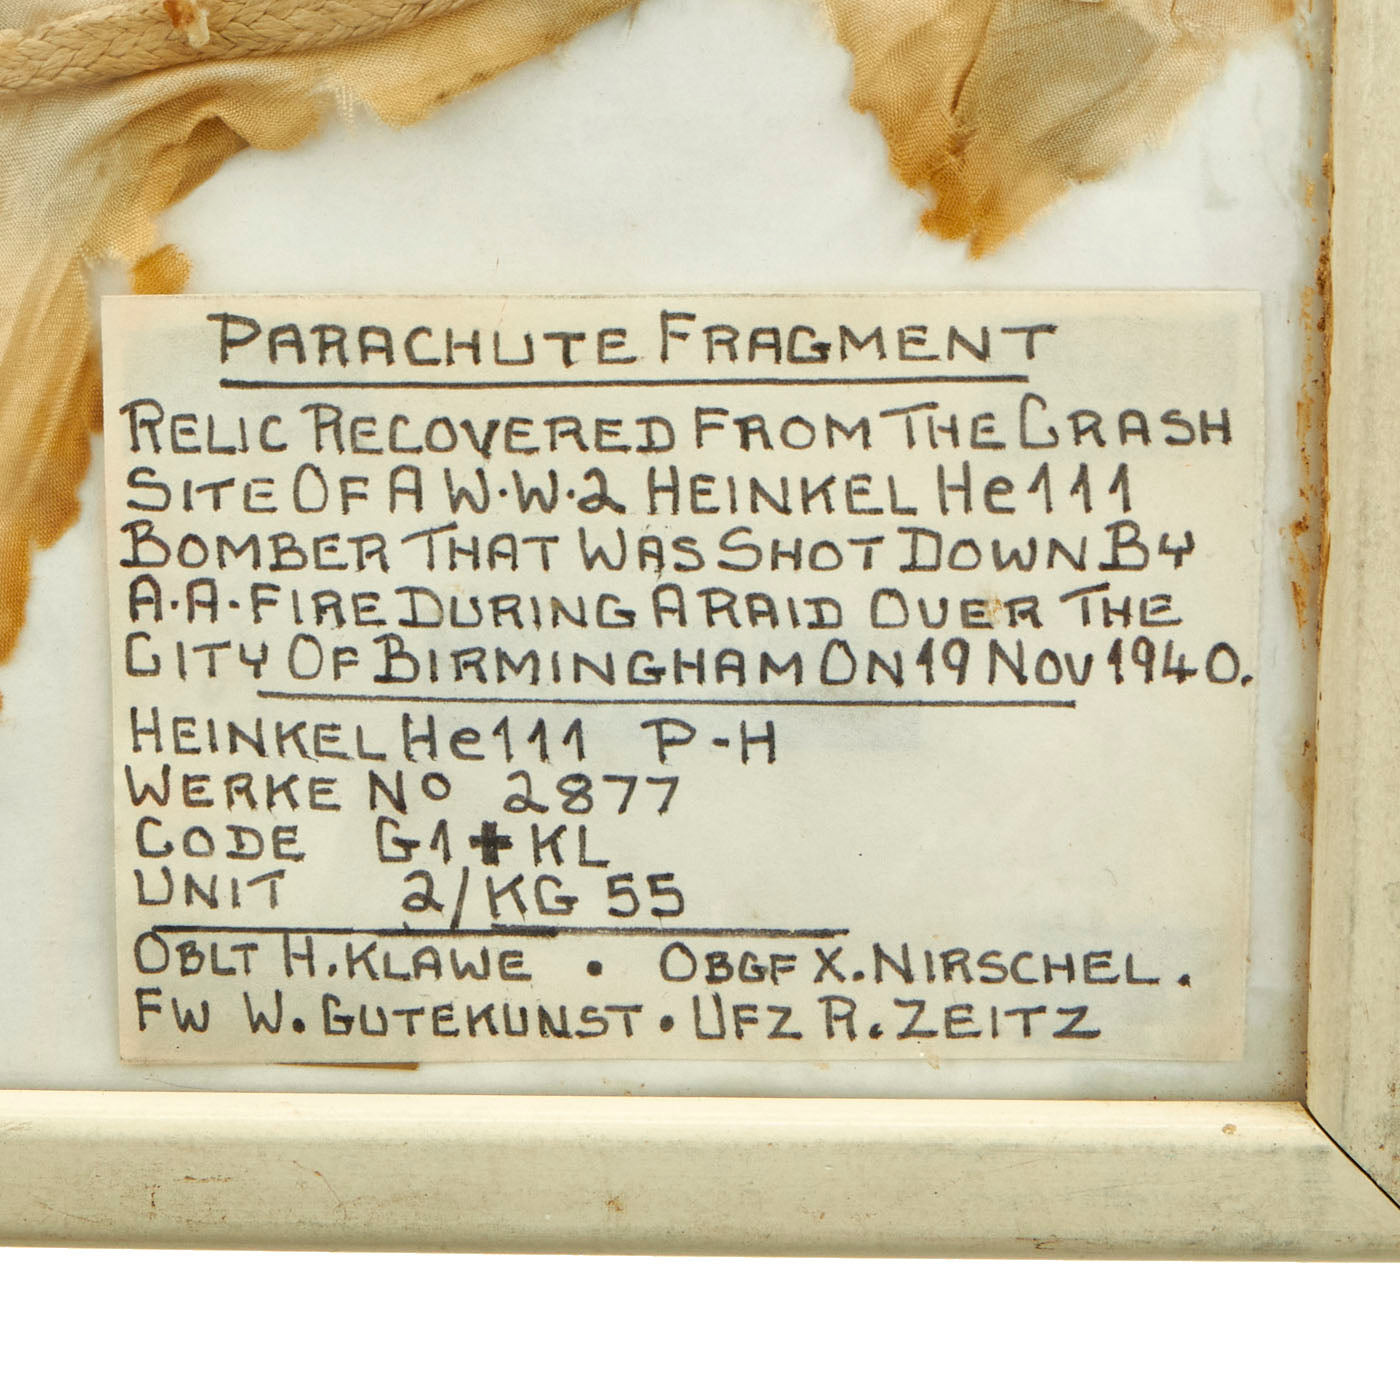 PARACHUTE FRAGMENT
RELIC RECOVERED FROM THE CRASH
SITE OF A W·W·2 HEINKEL He111
BOMBER THAT WAS SHOT DOWN BY
A·A·FIRE DURING A RAID OVER THE
CITY OF BIRMINGHAM ON 19 NOV 1940.
HEINKEL He111 P-H
WERKE No 2877
CODE G1+KL
UNIT 2/KG 55
OBLT H.KLAWE • OBGF X.NIRSCHEL.
FW W.GUTEKUNST • UFZ R.ZEITZ